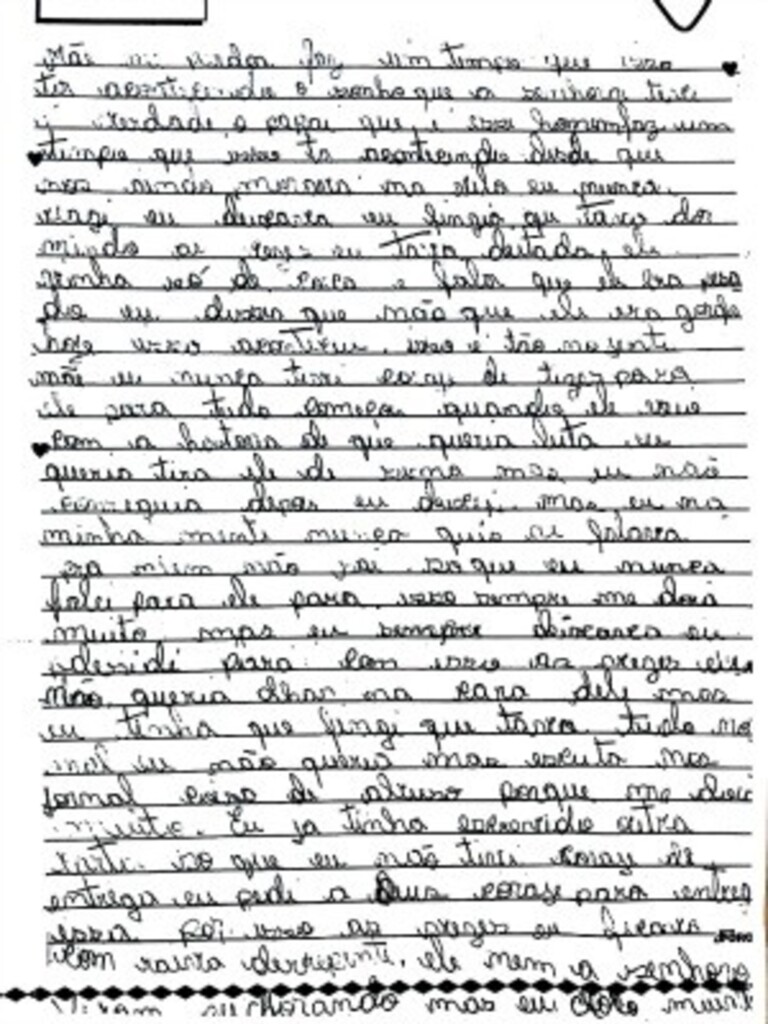 Mãe mi perdoa faz um tempo que isso
acontecendo o sonho que a senhora teve
é verdade o papai que é esse homem faz um
tempo que isso ta acontecendo desde que
nos ainda morava na vila eu nunca
reagi eu deixava eu fingia que tava dor
mindo as vezes eu tava deitada ele
vinha só de e fala que ele era
do eu dizia que não que ele era gordo
hoje isso aconteceu. isso é tão
mãe eu nunca tive coraje de tizer para
ele para tudo começou quando ele veve
com a hostoria de que queria luta eu
queria tira ele de sima mas eu não
conseguia depois eu deixei. mas eu na
minha mente nunca quis ai falava
pra mim não vai só que eu nunca
falei para ele para. isso sempre me doia
muito mas eu sempre deixava eu
desidi para com isso as vezes eu
não queria olhar na cara dele mas
eu tinha que fingi que tava tudo no
mal eu não queria mas escuta nos
jornal caso de abuso porque me doi
muito. Eu ja tinha escrevido outra
carta so que eu não tive coraje de
entrega eu pedi a Deus coraje para entre
essa por isso as vezes eu ficava
com raiva derrepente. ele nem a senhora
viram eu chorando mas eu choro muito